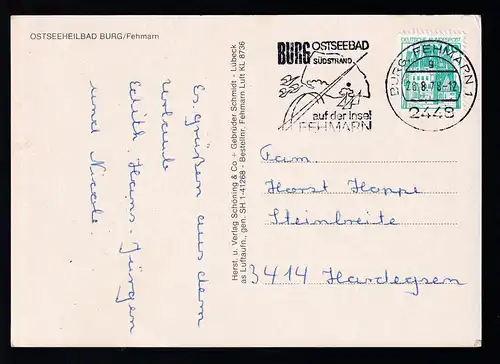 OSTSEEHEILBAD BURG/Fehmarn
Es grüßen aus dem
Urlaub
Edith, Hans-Jürgen
und Nicole.
Herst. u. Verlag Schöning & Co + Gebrüder Schmidt - Lübeck
as Luftaufn., gen. SH 1-41268 - Bestellnr. Fehmarn Luft KL 8736
BURG OSTSEEBAD
SÜDSTRAND
auf der Insel
FEHMARN
DEUTSCHE BUNDESPOST
BURG, FEHMARN 1
a
28.8.78-12
2448
Fam.
Horst Hoppe
Steinbreite
3414 Hardegsen